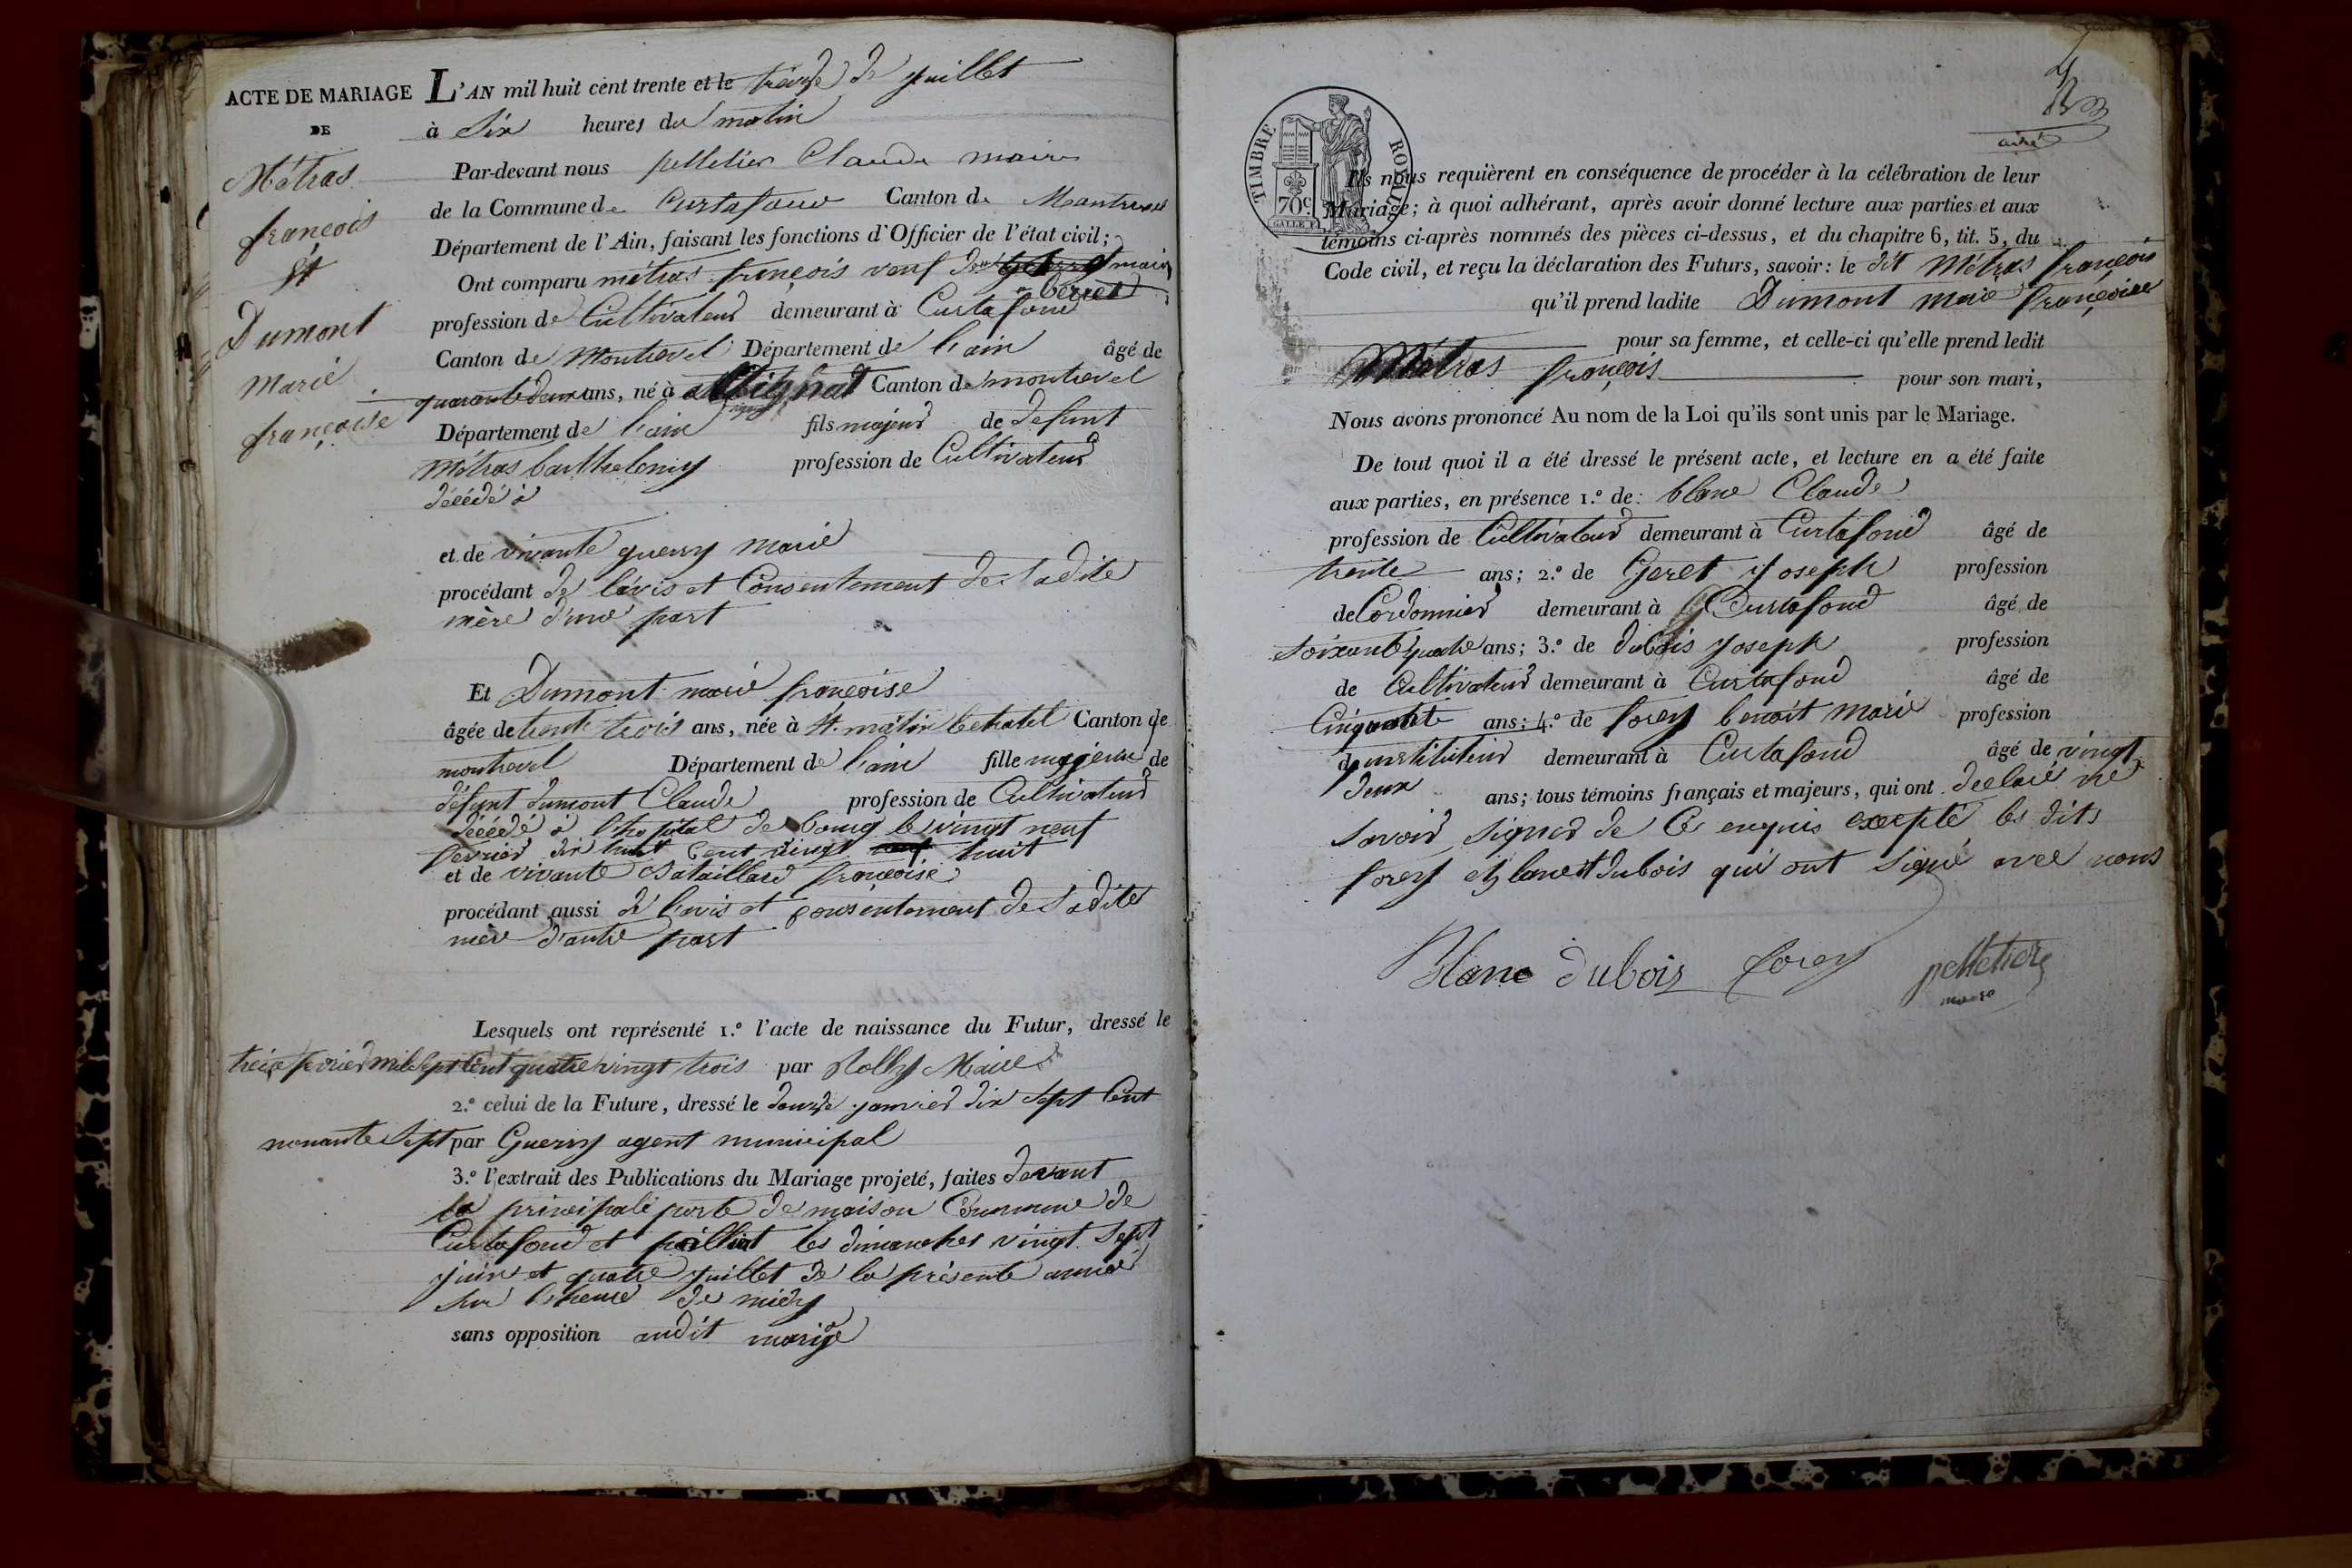 ACTE DE MARIAGE
DE
Métras
françois
Et
Dumont
Marie
françoise
L'AN mil huit cent trente et le treize de juillet
à Six heures du matin
Par-devant nous pelletier Claude maire
de la Commune de Curtafond Canton de Montrevel
Département de l'Ain, faisant les fonctions d'Officier de l'état civil;
Ont comparu métras françois veuf de marie
Berret
profession de Cultivateur demeurant à Curtafond
Canton de Montrevel Département de l'ain âgé de
quarante deux ans, né à attignat Canton de montrevel
Département de l'ain fils majeur de defunt
Métras barthelemy profession de Cultivateur
décédé à
et de vivante guerry marie
procédant de l'avis et Consentement de Sadite
mère d'une part
Et Dumont marie françoise
âgée de trente trois ans, née à St. martin lechatel Canton de
montrevel Département de l'ain fille majeure de
défunt dumont Claude profession de Cultivateur
décédé à l'hopital de bourg le vingt neuf
fevrier dix huit Cent vingt huit
et de vivante Bataillard françoise
procédant aussi de l'avis et consentement de Sadite
mère d'autre part
Lesquels ont représenté 1.º l'acte de naissance du Futur, dressé le
treize fevrier mil Sept Cent quatre vingt trois par Rolly Maire
2.º celui de la Future, dressé le douze janvier dix Sept Cent
nonante Sept par Guerry agent municipal
3.º l'extrait des Publications du Mariage projeté, faites devant
la principale porte de maison Commune de
Curtafond et poilliat les dimanches vingt Sept
juin et quatre juillet de la présente année
Sur l'heure de midy
sans opposition audit mariage
TIMBRE ROYAL
70c
Ils nous requièrent en conséquence de procéder à la célébration de leur
Mariage; à quoi adhérant, après avoir donné lecture aux parties et aux
témoins ci-après nommés des pièces ci-dessus, et du chapitre 6, tit. 5, du
Code civil, et reçu la déclaration des Futurs, savoir: le dit Métras françois
qu'il prend ladite Dumont marie françoise
pour sa femme, et celle-ci qu'elle prend ledit
Métras françois pour son mari,
Nous avons prononcé Au nom de la Loi qu'ils sont unis par le Mariage.
De tout quoi il a été dressé le présent acte, et lecture en a été faite
aux parties, en présence 1.º de: blanc Claude
profession de Cultivateur demeurant à Curtafond âgé de
trente ans; 2.º de Geret Joseph profession
de Cordonnier demeurant à Curtafond âgé de
Soixante quatre ans; 3.º de dubois Joseph profession
de Cultivateur demeurant à Curtafond âgé de
Cinquante ans; 4.º de forey benoit marie profession
d'instituteur demeurant à Curtafond âgé de vingt
deux ans; tous témoins français et majeurs, qui ont declaré ne
Savoir Signer de Ce enquis excepté les dits
forey et blanc et dubois qui ont Signé avec nous
Blanc dubois forey pelletier
maire